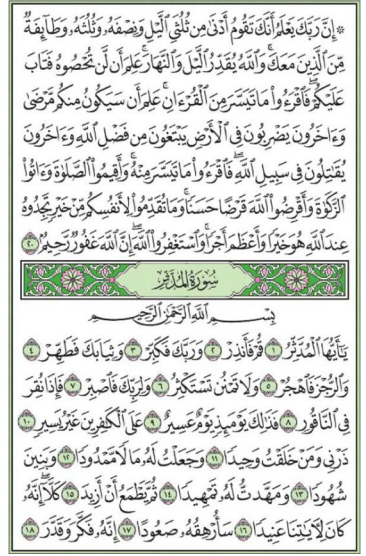 ۞ إِنَّ رَبَّكَ يَعْلَمُ أَنَّكَ تَقُومُ أَدْنَىٰ مِن ثُلُثَيِ ٱلَّيْلِ وَنِصْفَهُۥ وَثُلُثَهُۥ وَطَآئِفَةٌ
مِّنَ ٱلَّذِينَ مَعَكَ ۚ وَٱللَّهُ يُقَدِّرُ ٱلَّيْلَ وَٱلنَّهَارَ ۚ عَلِمَ أَن لَّن تُحْصُوهُ فَتَابَ
عَلَيْكُمْ ۖ فَٱقْرَءُوا۟ مَا تَيَسَّرَ مِنَ ٱلْقُرْءَانِ ۚ عَلِمَ أَن سَيَكُونُ مِنكُم مَّرْضَىٰ
وَءَاخَرُونَ يَضْرِبُونَ فِى ٱلْأَرْضِ يَبْتَغُونَ مِن فَضْلِ ٱللَّهِ ۙ وَءَاخَرُونَ
يُقَـٰتِلُونَ فِى سَبِيلِ ٱللَّهِ ۖ فَٱقْرَءُوا۟ مَا تَيَسَّرَ مِنْهُ ۚ وَأَقِيمُوا۟ ٱلصَّلَوٰةَ وَءَاتُوا۟
ٱلزَّكَوٰةَ وَأَقْرِضُوا۟ ٱللَّهَ قَرْضًا حَسَنًا ۚ وَمَا تُقَدِّمُوا۟ لِأَنفُسِكُم مِّنْ خَيْرٍ تَجِدُوهُ
عِندَ ٱللَّهِ هُوَ خَيْرًا وَأَعْظَمَ أَجْرًا ۚ وَٱسْتَغْفِرُوا۟ ٱللَّهَ ۖ إِنَّ ٱللَّهَ غَفُورٌ رَّحِيمٌۢ ٢٠
سُورَةُ المُدَّثِّرِ
بِسْمِ ٱللَّهِ ٱلرَّحْمَـٰنِ ٱلرَّحِيمِ
يَـٰٓأَيُّهَا ٱلْمُدَّثِّرُ ١ قُمْ فَأَنذِرْ ٢ وَرَبَّكَ فَكَبِّرْ ٣ وَثِيَابَكَ فَطَهِّرْ ٤
وَٱلرُّجْزَ فَٱهْجُرْ ٥ وَلَا تَمْنُن تَسْتَكْثِرُ ٦ وَلِرَبِّكَ فَٱصْبِرْ ٧ فَإِذَا نُقِرَ
فِى ٱلنَّاقُورِ ٨ فَذَٰلِكَ يَوْمَئِذٍ يَوْمٌ عَسِيرٌ ٩ عَلَى ٱلْكَـٰفِرِينَ غَيْرُ يَسِيرٍ ١٠
ذَرْنِى وَمَنْ خَلَقْتُ وَحِيدًا ١١ وَجَعَلْتُ لَهُۥ مَالًا مَّمْدُودًا ١٢ وَبَنِينَ
شُهُودًا ١٣ وَمَهَّدتُّ لَهُۥ تَمْهِيدًا ١٤ ثُمَّ يَطْمَعُ أَنْ أَزِيدَ ١٥ كَلَّآ ۖ إِنَّهُۥ
كَانَ لِـَٔايَـٰتِنَا عَنِيدًا ١٦ سَأُرْهِقُهُۥ صَعُودًا ١٧ إِنَّهُۥ فَكَّرَ وَقَدَّرَ ١٨